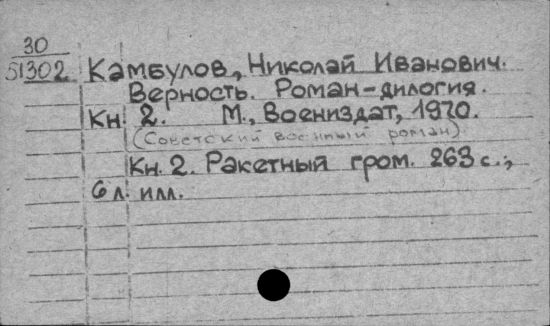 30
51302
Камбулов, Николай Иванович.
Верность. Роман-дилогия.
Кн. 2. М., Воениздат, 1970.
(Советский военный роман)
Кн. 2. Ракетный гром. 263 с.,
6 л. илл.